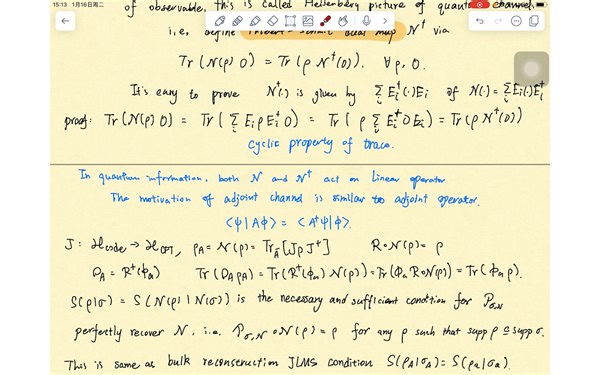 15:13 1月16日周二
of observable, this is called Heisenberg picture of quantum channel
i.e. define Hilbert-Schmidt dual map N† via
Tr(N(ρ)O) = Tr(ρ N†(O)). ∀ρ, O.
It's easy to prove N†(·) is given by Σ_i E_i†(·)E_i if N(·)=Σ_i E_i(·)E_i†
proof: Tr(N(ρ)O) = Tr(Σ_i E_i ρ E_i† O) = Tr(ρ Σ_i E_i† O E_i) = Tr(ρ N†(O))
cyclic property of trace.
In quantum information, both N and N† act on Linear operator
The motivation of adjoint channel is similar to adjoint operator.
⟨ψ|Aϕ⟩ = ⟨A†ψ|ϕ⟩.
J: H_code → H_CFT, ρ_A = N(ρ) = Tr_Ā[JρJ†] R∘N(ρ) = ρ
O_A = R†(ϕ_a) Tr(O_A ρ_A) = Tr(R†(ϕ_a) N(ρ)) = Tr(ϕ_a R∘N(ρ)) = Tr(ϕ_a ρ).
S(ρ|σ) = S(N(ρ)|N(σ)) is the necessary and sufficient condtion for P_σ,N
perfectly recover N, i.e. P_σ,N ∘N(ρ) = ρ for any ρ such that supp ρ ⊆ supp σ.
This is same as bulk reconstruction JLMS condition S(ρ_A|σ_A) = S(ρ_a|σ_a).